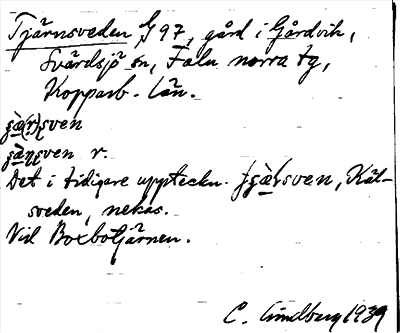 Tjärnsveden J 97, gård i Gårdvik,
Svärdsjö sn, Falu norra tg,
Kopparb. län.
sven
sven r.
Det i tidigare uppteckn. sven, Käl-
sveden, nekas.
Vid Boxbotjärnen.
C. Lindberg 1939